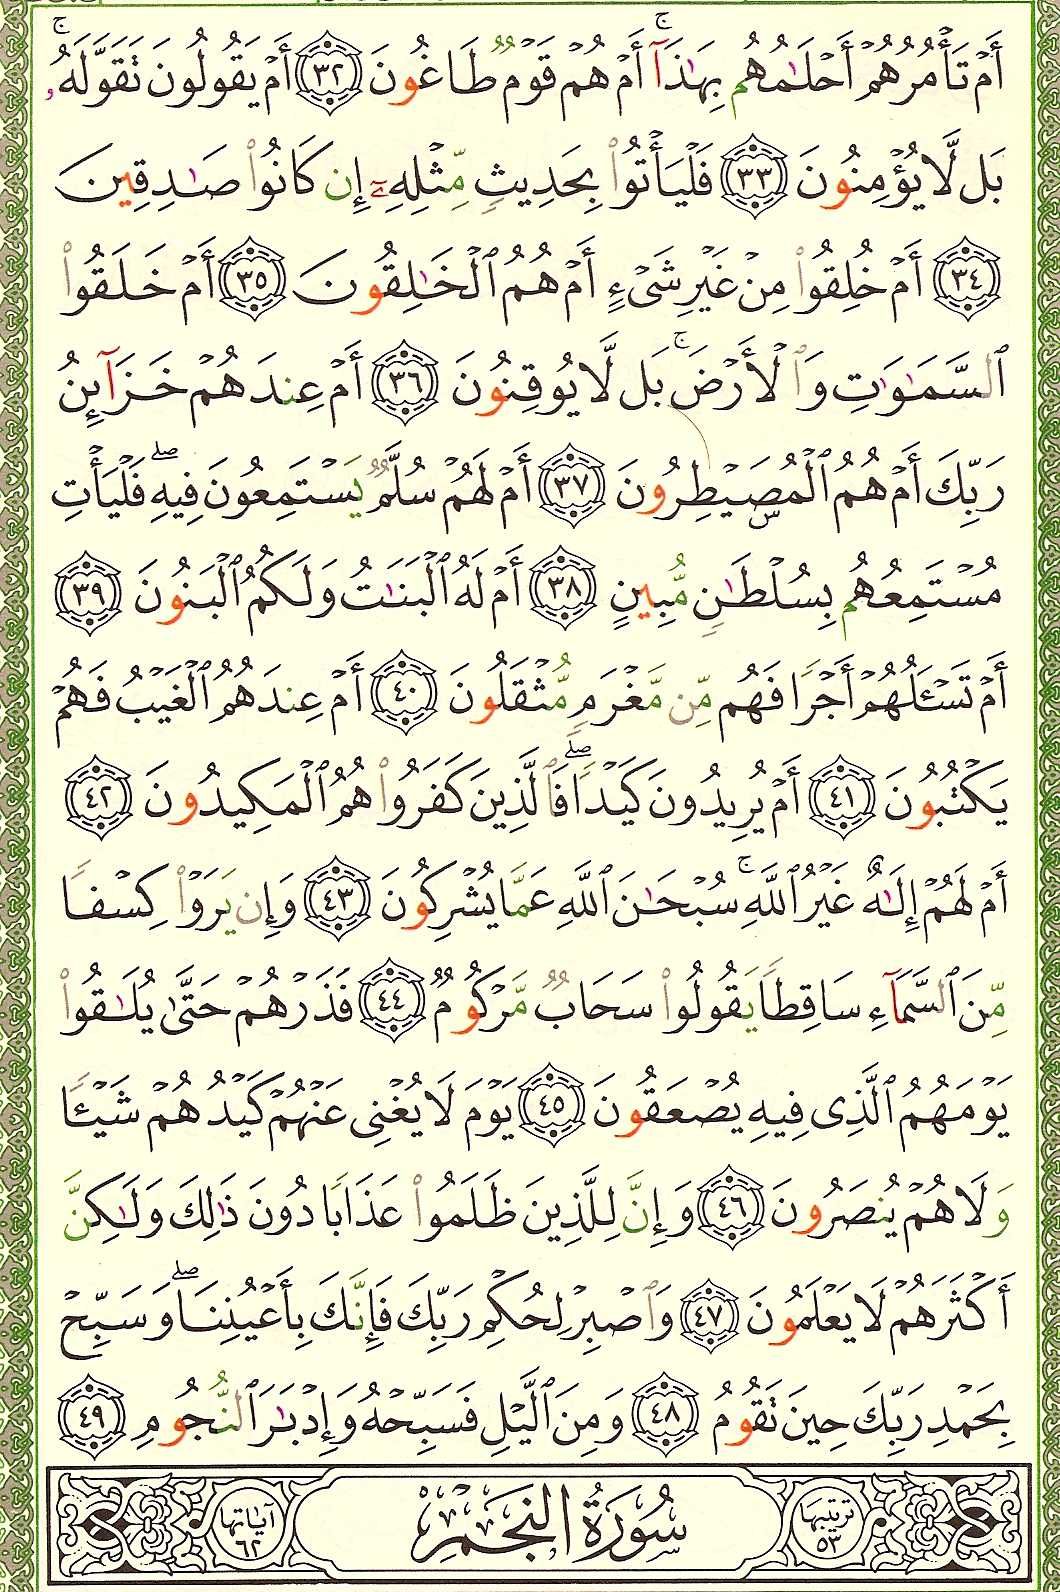 أَمْ تَأْمُرُهُمْ أَحْلَٰمُهُم بِهَٰذَآ ۚ أَمْ هُمْ قَوْمٌ طَاغُونَ ﴿٣٢﴾ أَمْ يَقُولُونَ تَقَوَّلَهُۥ ۚ
بَل لَّا يُؤْمِنُونَ ﴿٣٣﴾ فَلْيَأْتُوا۟ بِحَدِيثٍ مِّثْلِهِۦٓ إِن كَانُوا۟ صَٰدِقِينَ
﴿٣٤﴾ أَمْ خُلِقُوا۟ مِنْ غَيْرِ شَىْءٍ أَمْ هُمُ ٱلْخَٰلِقُونَ ﴿٣٥﴾ أَمْ خَلَقُوا۟
ٱلسَّمَٰوَٰتِ وَٱلْأَرْضَ ۚ بَل لَّا يُوقِنُونَ ﴿٣٦﴾ أَمْ عِندَهُمْ خَزَآئِنُ
رَبِّكَ أَمْ هُمُ ٱلْمُصَۣيْطِرُونَ ﴿٣٧﴾ أَمْ لَهُمْ سُلَّمٌ يَسْتَمِعُونَ فِيهِ ۖ فَلْيَأْتِ
مُسْتَمِعُهُم بِسُلْطَٰنٍ مُّبِينٍ ﴿٣٨﴾ أَمْ لَهُ ٱلْبَنَٰتُ وَلَكُمُ ٱلْبَنُونَ ﴿٣٩﴾
أَمْ تَسْـَٔلُهُمْ أَجْرًا فَهُم مِّن مَّغْرَمٍ مُّثْقَلُونَ ﴿٤٠﴾ أَمْ عِندَهُمُ ٱلْغَيْبُ فَهُمْ
يَكْتُبُونَ ﴿٤١﴾ أَمْ يُرِيدُونَ كَيْدًا ۖ فَٱلَّذِينَ كَفَرُوا۟ هُمُ ٱلْمَكِيدُونَ ﴿٤٢﴾
أَمْ لَهُمْ إِلَٰهٌ غَيْرُ ٱللَّهِ ۚ سُبْحَٰنَ ٱللَّهِ عَمَّا يُشْرِكُونَ ﴿٤٣﴾ وَإِن يَرَوْا۟ كِسْفًا
مِّنَ ٱلسَّمَآءِ سَاقِطًا يَقُولُوا۟ سَحَابٌ مَّرْكُومٌ ﴿٤٤﴾ فَذَرْهُمْ حَتَّىٰ يُلَٰقُوا۟
يَوْمَهُمُ ٱلَّذِى فِيهِ يُصْعَقُونَ ﴿٤٥﴾ يَوْمَ لَا يُغْنِى عَنْهُمْ كَيْدُهُمْ شَيْـًٔا
وَلَا هُمْ يُنصَرُونَ ﴿٤٦﴾ وَإِنَّ لِلَّذِينَ ظَلَمُوا۟ عَذَابًا دُونَ ذَٰلِكَ وَلَٰكِنَّ
أَكْثَرَهُمْ لَا يَعْلَمُونَ ﴿٤٧﴾ وَٱصْبِرْ لِحُكْمِ رَبِّكَ فَإِنَّكَ بِأَعْيُنِنَا ۖ وَسَبِّحْ
بِحَمْدِ رَبِّكَ حِينَ تَقُومُ ﴿٤٨﴾ وَمِنَ ٱلَّيْلِ فَسَبِّحْهُ وَإِدْبَٰرَ ٱلنُّجُومِ ﴿٤٩﴾
ترتيبها ٥٣ سُورَةُ النَّجْمِ آياتها ٦٢